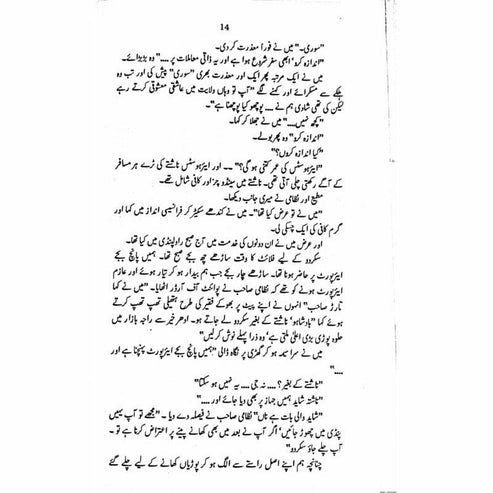 14
"سوری۔" میں نے فوراً معذرت کر دی۔
"اندازہ کرو' ابھی سفر شروع ہوا ہے اور یہ ذاتی معاملات پر ...." وہ بڑبڑائے۔
میں نے ایک مرتبہ پھر ایک اور معذرت بھری "سوری" پیش کی اور تب وہ
ہلکے سے مسکرائے اور کہنے لگے "آپ تو وہاں ولایت میں عاشقی معشوقی کرتے رہے
لیکن کی تھی شادی ہم نے .... پوچھو کیا پوچھنا ہے"۔
"کچھ نہیں...." میں نے جھلا کر کہا۔
"اندازہ کرو" وہ پھر بولے۔
"کیا اندازہ کروں؟"
"ایئرہوسٹس کی عمر کتنی ہو گی؟" -- اور ایئرہوسٹس ناشتے کی ٹرے ہر مسافر
کے آگے رکھتی چلی آتی تھی۔ ناشتے میں سینڈوچز اور کافی شامل تھے۔
مطیع اور نظامی نے میری جانب دیکھا۔
"میں نے تو عرض کیا تھا"۔ میں نے کندھے سکیڑ کر فرانسیسی انداز میں کہا اور
گرم کافی کی ایک چسکی لی۔
اور عرض میں نے ان دونوں کی خدمت میں آج صبح راولپنڈی میں کیا تھا۔
سکردو کے لیے فلائٹ کا وقت ساڑھے چھ بجے صبح تھا۔ ہمیں پانچ بجے
ایئرپورٹ پر حاضر ہونا تھا۔ ساڑھے چار بجے جب ہم بیدار ہو کر تیار ہوئے اور عازم
ایئرپورٹ ہونے کو تھے کہ نظامی صاحب نے پوائنٹ آف آرڈر اٹھایا۔ "میں نے کہا
تارڑ صاحب" انہوں نے اپنے پیٹ پر بھوکے فقیر کی طرح ہتھیلی تھپ تھپ کرتے
ہوئے کہا "بادشاہو' ناشتے کے بغیر سکردو لے جاتے ہو۔ ادھر خیر سے راجہ بازار میں
حلوہ پوڑی بڑی اعلیٰ ملتی ہے' وہ ذرا پہلے نوش کر لیں"
میں نے سراسیمہ ہو کر گھڑی پر نگاہ ڈالی "ہمیں پانچ بجے ایئرپورٹ پہنچنا ہے اور
...."
"ناشتے کے بغیر؟ .... نہ جی .... یہ نہیں ہو سکتا"
"ناشتہ شاید ہمیں جہاز پر بھی دیا جائے اور ...."
"شاید والی بات ہے ناں" نظامی صاحب نے فیصلہ دے دیا - "مجھے تو آپ یہیں
پنڈی میں چھوڑ جائیں' اگر آپ نے بعد میں بھی کھانے پینے پر اعتراض کرنا ہے تو -
آپ چلے جاؤ سکردو"
چنانچہ ہم اپنے اصل راستے سے الگ ہو کر پوڑیاں کھانے کے لیے چلے گئے